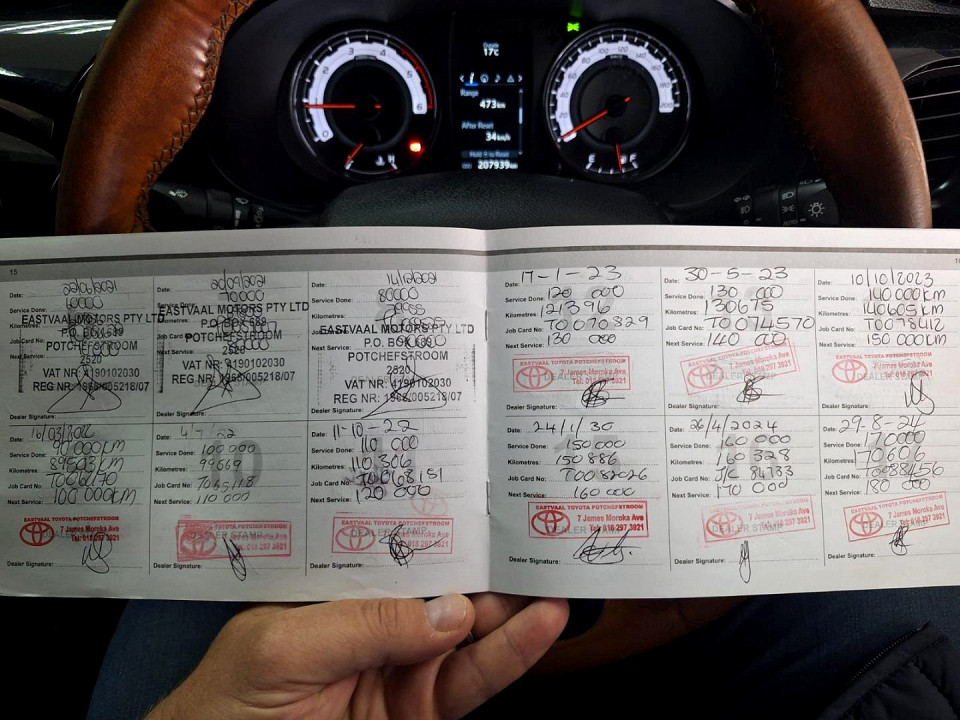 Outside
17c
Range
473km
After Reset
34km/h
Hold to Reset
207939km
15
Date: 22/06/2021
Service Done: 60000
Kilometres:
Job Card No:
Next Service:
EASTVAAL MOTORS PTY LTD
P.O. BOX 589
POTCHEFSTROOM
2520
VAT NR: 4190102030
REG NR: 1968/005218/07
Dealer Signature:
Date: 20/09/2021
Service Done: 70000
Kilometres:
Job Card No:
Next Service:
EASTVAAL MOTORS PTY LTD
P.O. BOX 589
POTCHEFSTROOM
2520
VAT NR: 4190102030
REG NR: 1968/005218/07
Dealer Signature:
Date: 14/12/2021
Service Done: 80000
Kilometres:
Job Card No:
Next Service:
EASTVAAL MOTORS PTY LTD
P.O. BOX 589
POTCHEFSTROOM
2520
VAT NR: 4190102030
REG NR: 1968/005218/07
Dealer Signature:
Date: 16/03/2022
Service Done: 90 000km
Kilometres: 89503km
Job Card No:
Next Service: 100 000km
EASTVAAL TOYOTA POTCHEFSTROOM
7 James Moroka Ave
Tel: 018 297 3921
Dealer Signature:
Date: 4/7/22
Service Done: 100 000
Kilometres: 99669
Job Card No:
Next Service: 110 000
EASTVAAL TOYOTA POTCHEFSTROOM
7 James Moroka Ave
Tel: 018 297 3921
Dealer Signature:
Date: 11-10-22
Service Done: 110 000
Kilometres: 110 306
Job Card No: T0068151
Next Service: 120 000
EASTVAAL TOYOTA POTCHEFSTROOM
7 James Moroka Ave
Tel: 018 297 3921
Dealer Signature:
Date: 17-1-23
Service Done: 120 000
Kilometres: 121396
Job Card No: T0070829
Next Service: 130 000
EASTVAAL TOYOTA POTCHEFSTROOM
7 James Moroka Ave
Tel: 018 297 3921
Dealer Signature:
Date: 30-5-23
Service Done: 130 000
Kilometres: 130675
Job Card No: T0074570
Next Service: 140 000
EASTVAAL TOYOTA POTCHEFSTROOM
7 James Moroka Ave
Tel: 018 297 3921
Dealer Signature:
Date: 10/10/2023
Service Done: 140 000km
Kilometres: 140605km
Job Card No: T0078412
Next Service: 150 000km
EASTVAAL TOYOTA POTCHEFSTROOM
7 James Moroka Ave
Tel: 018 297 3921
Dealer Signature:
Date: 24/1/30
Service Done: 150 000
Kilometres: 150 886
Job Card No: T0082026
Next Service: 160 000
EASTVAAL TOYOTA POTCHEFSTROOM
7 James Moroka Ave
Tel: 018 297 3921
Dealer Signature:
Date: 26/4/2024
Service Done: 160 000
Kilometres: 160 328
Job Card No: J/C 84733
Next Service: 170 000
EASTVAAL TOYOTA POTCHEFSTROOM
7 James Moroka Ave
Tel: 018 297 3921
Dealer Signature:
Date: 29-8-24
Service Done: 170000
Kilometres: 170606
Job Card No: T0088456
Next Service: 180 000
EASTVAAL TOYOTA POTCHEFSTROOM
7 James Moroka Ave
Tel: 018 297 3921
Dealer Signature: